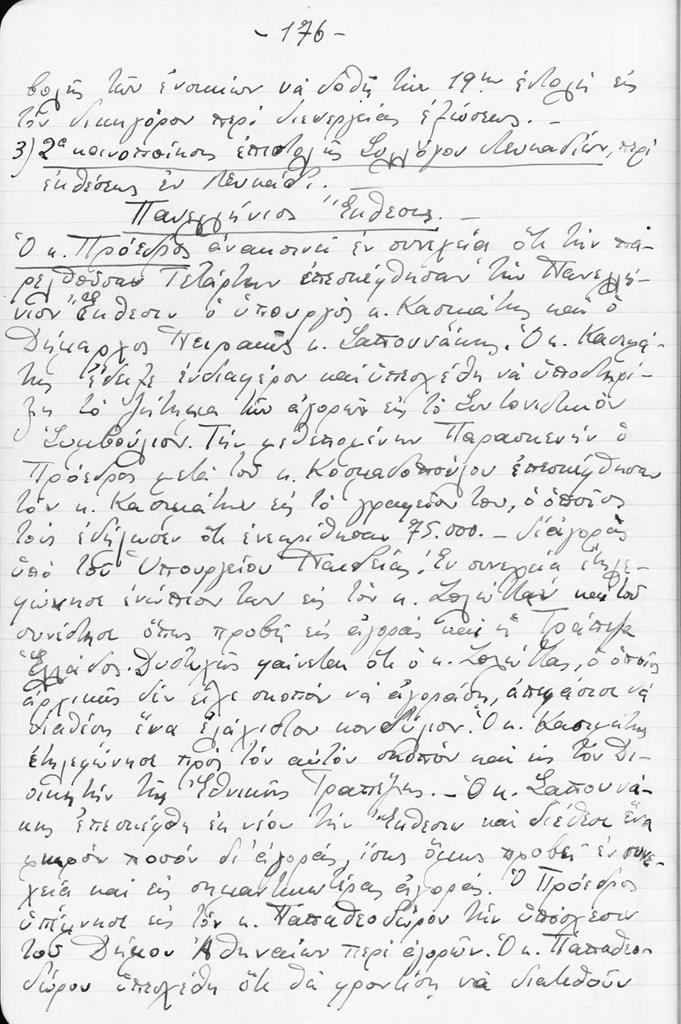 - 176 -
βολῆς τῶν ἐνοικίων νὰ δοθῇ τὴν 19ην ἐντολὴ εἰς
τὸν δικηγόρον περὶ διενεργείας ἐξώσεως. -
3) 2α κοινοποίησις ἐπιστολῆς Συλλόγου Λευκαδίων, περὶ
ἐκθέσεως ἐν Λευκάδι. -
Πανελλήνιος Ἔκθεσις. -
Ὁ κ. Πρόεδρος ἀνακοινεῖ ἐν συνεχείᾳ ὅτι τὴν πα-
ρελθοῦσαν Τετάρτην ἐπεσκέφθησαν τὴν Πανελλή-
νιον Ἔκθεσιν ὁ ὑπουργὸς κ. Κασιμάτης καὶ ὁ
Δήμαρχος Πειραιῶς κ. Σαπουνάκης. Ὁ κ. Κασιμά-
της ἔδειξε ἐνδιαφέρον καὶ ὑπεσχέθη νὰ ὑποστηρί-
ξῃ τὸ ζήτημα τῶν ἀγορῶν εἰς τὸ Συντονιστικὸν
Συμβούλιον. Τὴν μεθεπομένην Παρασκευὴν ὁ
Πρόεδρος μετὰ τοῦ κ. Κοσμαδοπούλου ἐπεσκέφθησαν
τὸν κ. Κασιμάτην εἰς τὸ γραφεῖον του, ὁ ὁποῖος
τοὺς ἐδήλωσεν ὅτι ἐνεκρίθησαν 75.000. - δι' ἀγορὰς
ὑπὸ τοῦ Ὑπουργείου Παιδείας. Ἐν συνεχείᾳ ἐτηλε-
φώνησε ἐνώπιον των εἰς τὸν κ. Ζολώταν καὶ τοῦ
συνέστησε ὅπως προβῇ εἰς ἀγορὰς καὶ ἡ Τράπεζα
Ἑλλάδος. Δυστυχῶς φαίνεται ὅτι ὁ κ. Ζολώτας, ὁ ὁποῖος
ἀρχικῶς δὲν εἶχε σκοπὸν νὰ ἀγοράσῃ, ἀπεφάσισε νὰ
διαθέσῃ ἕνα ἐλάχιστον κονδύλιον. Ὁ κ. Κασιμάτης
ἐτηλεφώνησε πρὸς τὸν αὐτὸν σκοπὸν καὶ εἰς τὸν Δι-
οικητὴν τῆς Ἐθνικῆς Τραπέζης. - Ὁ κ. Σαπουνά-
κης ἐπεσκέφθη ἐκ νέου τὴν Ἔκθεσιν καὶ διέθεσε ἕνα
μικρὸν ποσὸν δι' ἀγοράς, ἴσως ὅμως προβεῖ ἐν συνε-
χείᾳ καὶ εἰς σημαντικωτέρας ἀγοράς. Ὁ Πρόεδρος
ὑπέμνησε εἰς τὸν κ. Παπαθεοδώρου τὴν ὑπόσχεσιν
τοῦ Δήμου Ἀθηναίων περὶ ἀγορῶν. Ὁ κ. Παπαθεο-
δώρου ὑπεσχέθη ὅτι θὰ φροντίσῃ νὰ διατεθοῦν